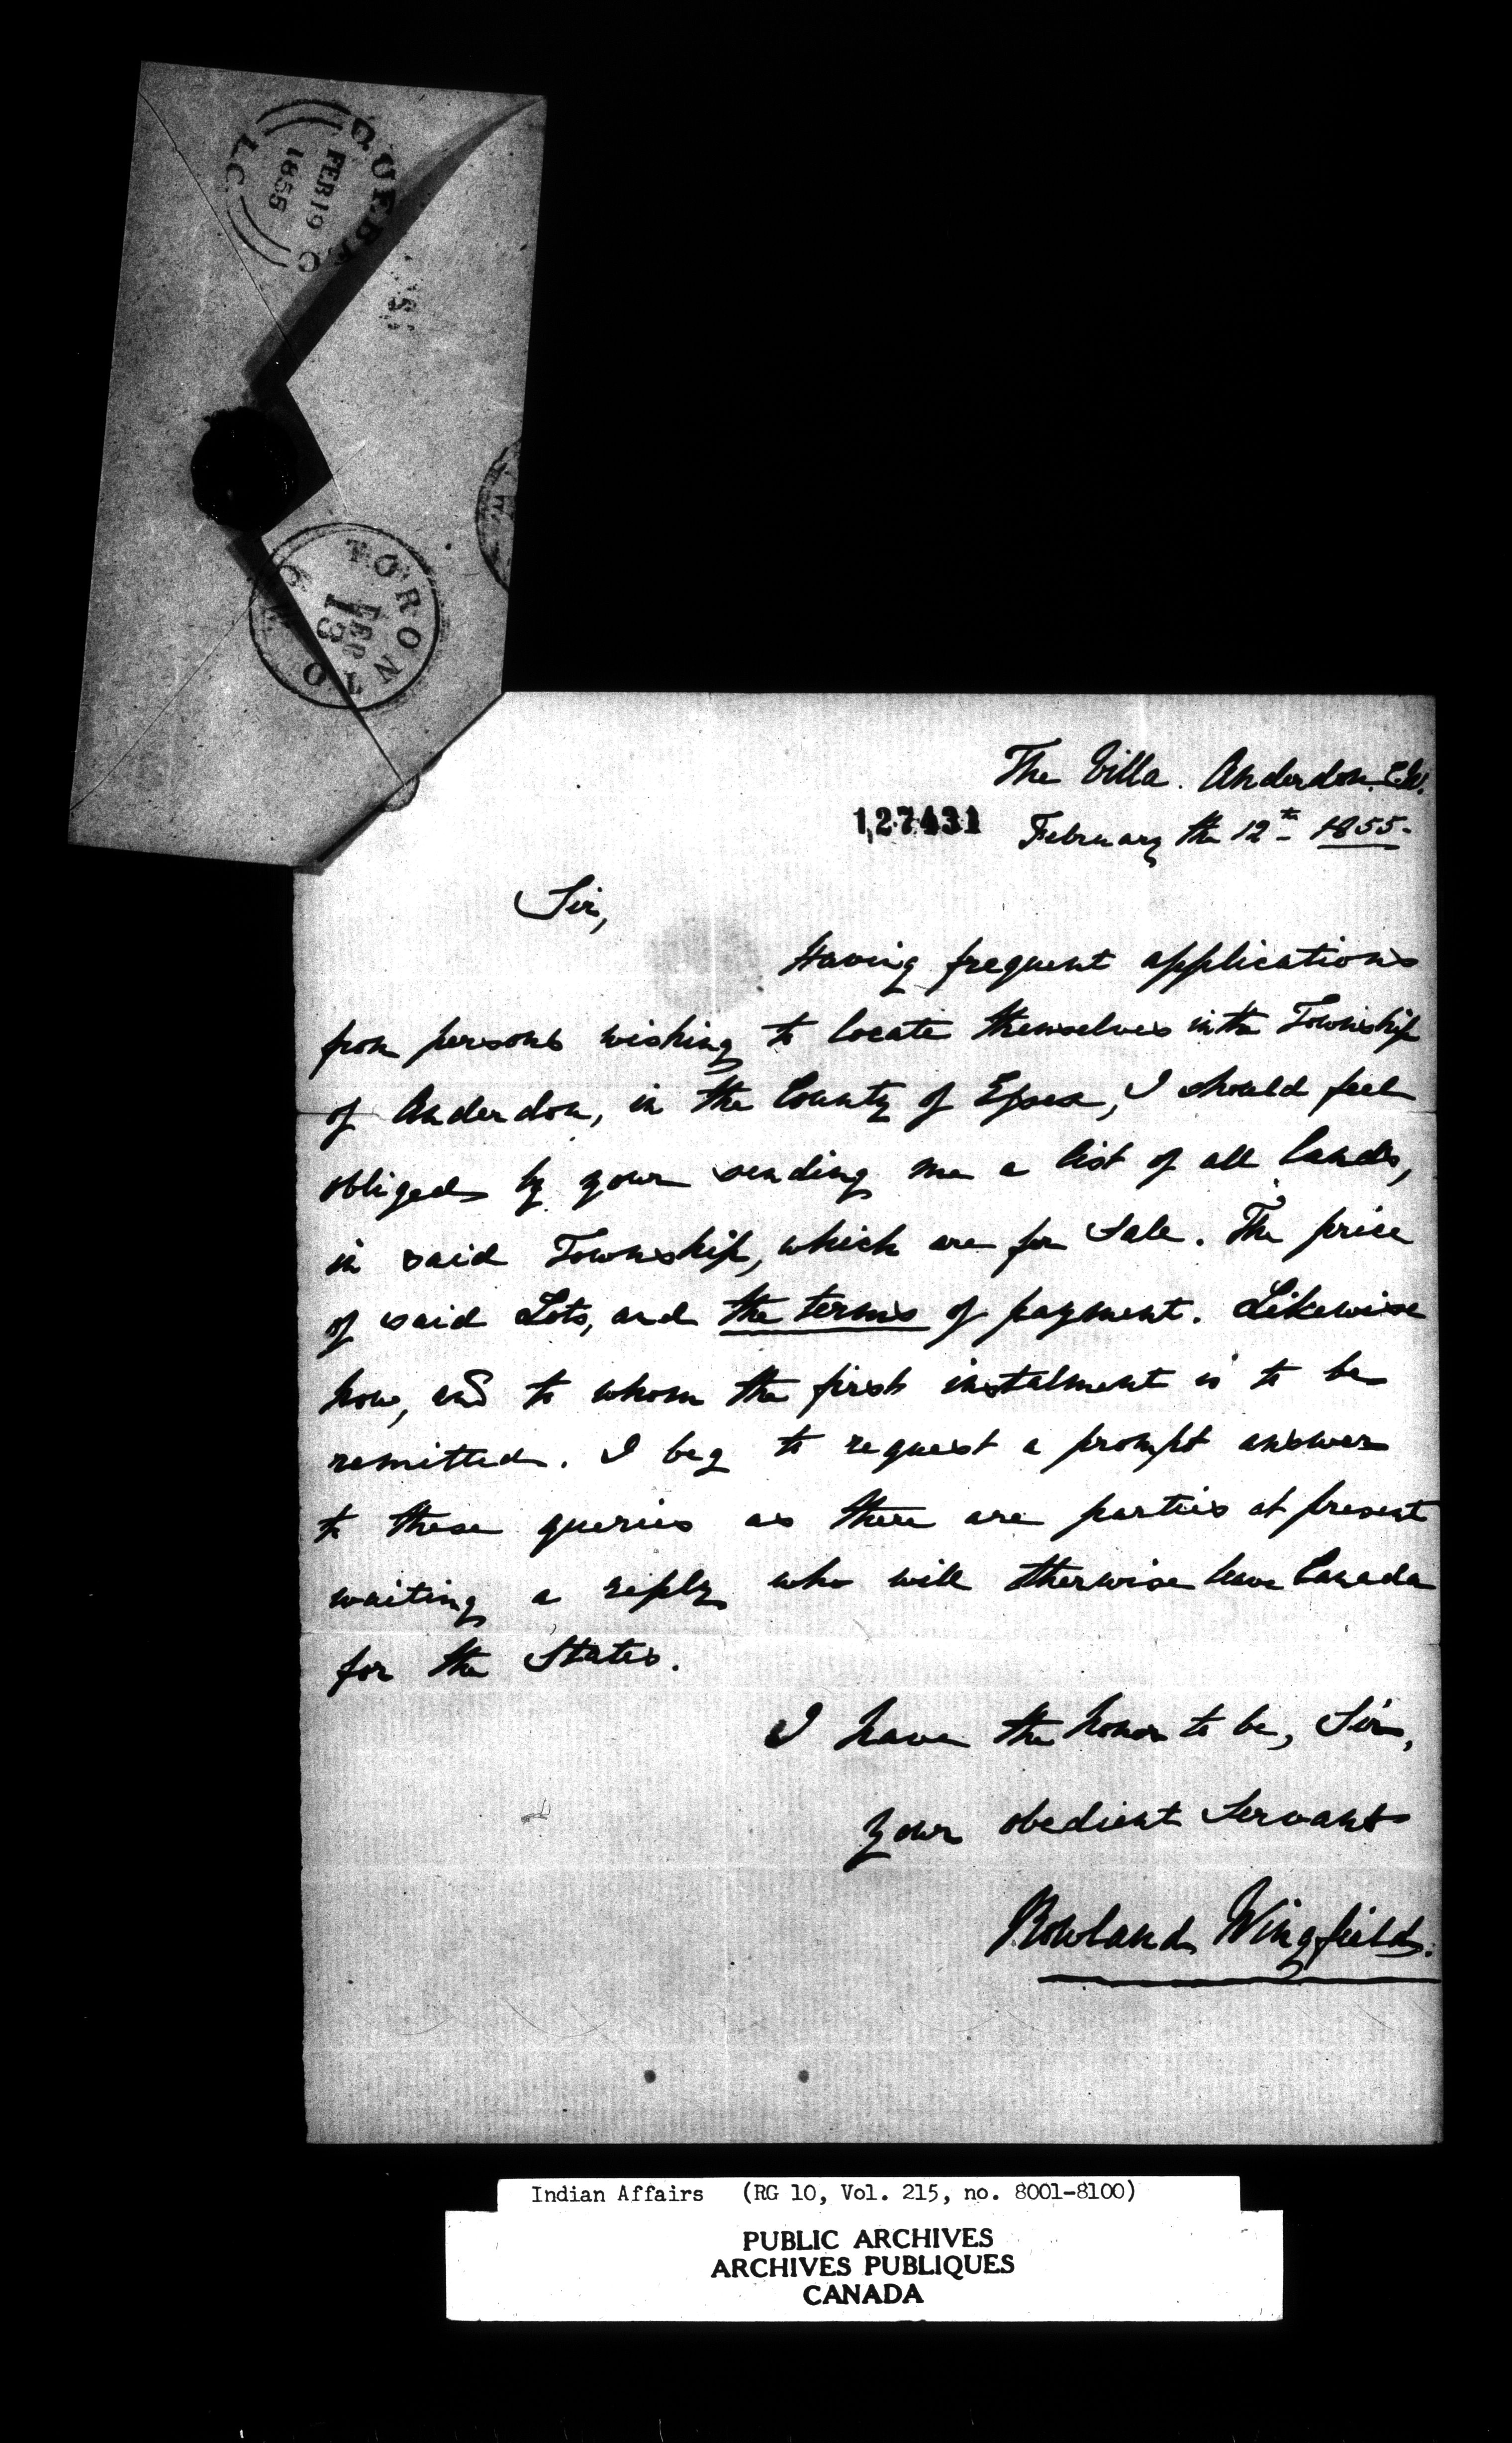 QUEBEC
FEB 19
1855
L.C.
TORONTO
FEB
The Villa. Anderdon. C.W.
127431
February the 12th 1855.
Sir,
Having frequent applications
from persons wishing to locate themselves in the Township
of Anderdon, in the County of Essex, I should feel
obliged by your sending me a list of all lands,
in said Township, which are for Sale. The price
of said Lots, and the terms of payment. Likewise
how, and to whom the first instalment is to be
remitted. I beg to request a prompt answer
to these queries as there are parties at present
waiting a reply who will otherwise leave Canada
for the States.
I have the honor to be, Sir,
Your obedient Servant
Rowland Wingfield.
Indian Affairs (RG 10, Vol. 215, no. 8001-8100)
PUBLIC ARCHIVES
ARCHIVES PUBLIQUES
CANADA